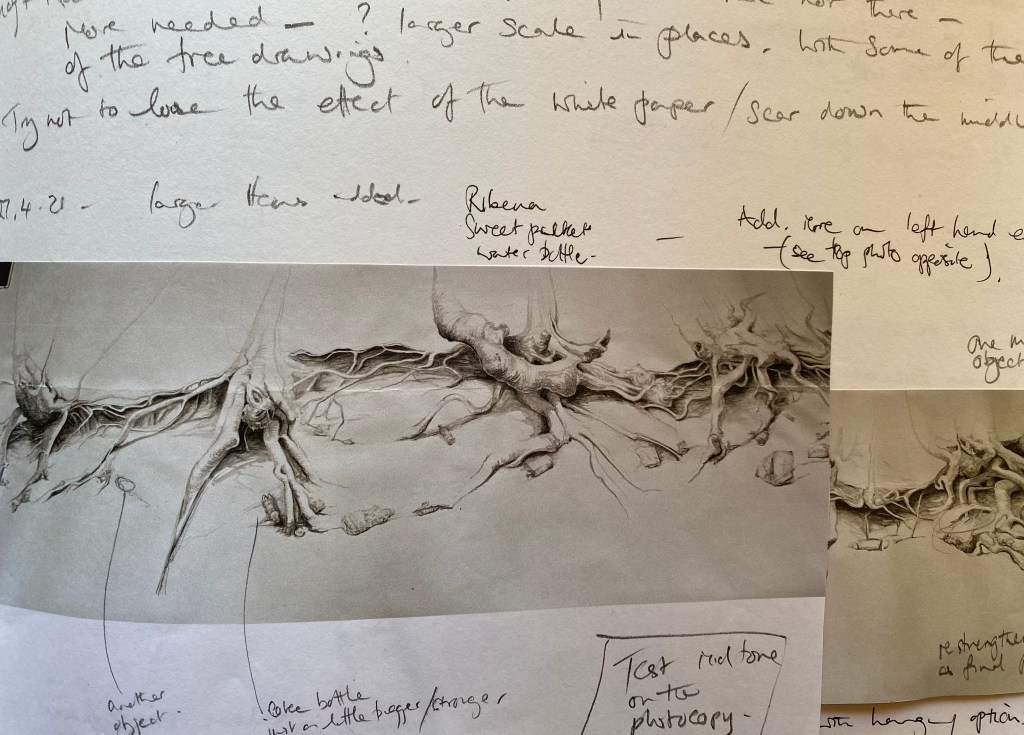 not there –
More needed – ? larger scale in places. With some of the
of the tree drawings.
Try not to loose the effect of the white paper / scar down the middl
27.4.21 - larger items added - Ribena
Sweet packets
water bottle -
– Add. more on left hand e
(see top photo opposite).
one m
object
another
object.
coke bottle
just a little bigger/stronger
Test mid tone
on to
photocopy -
restrengthe
as final
with hanging option.